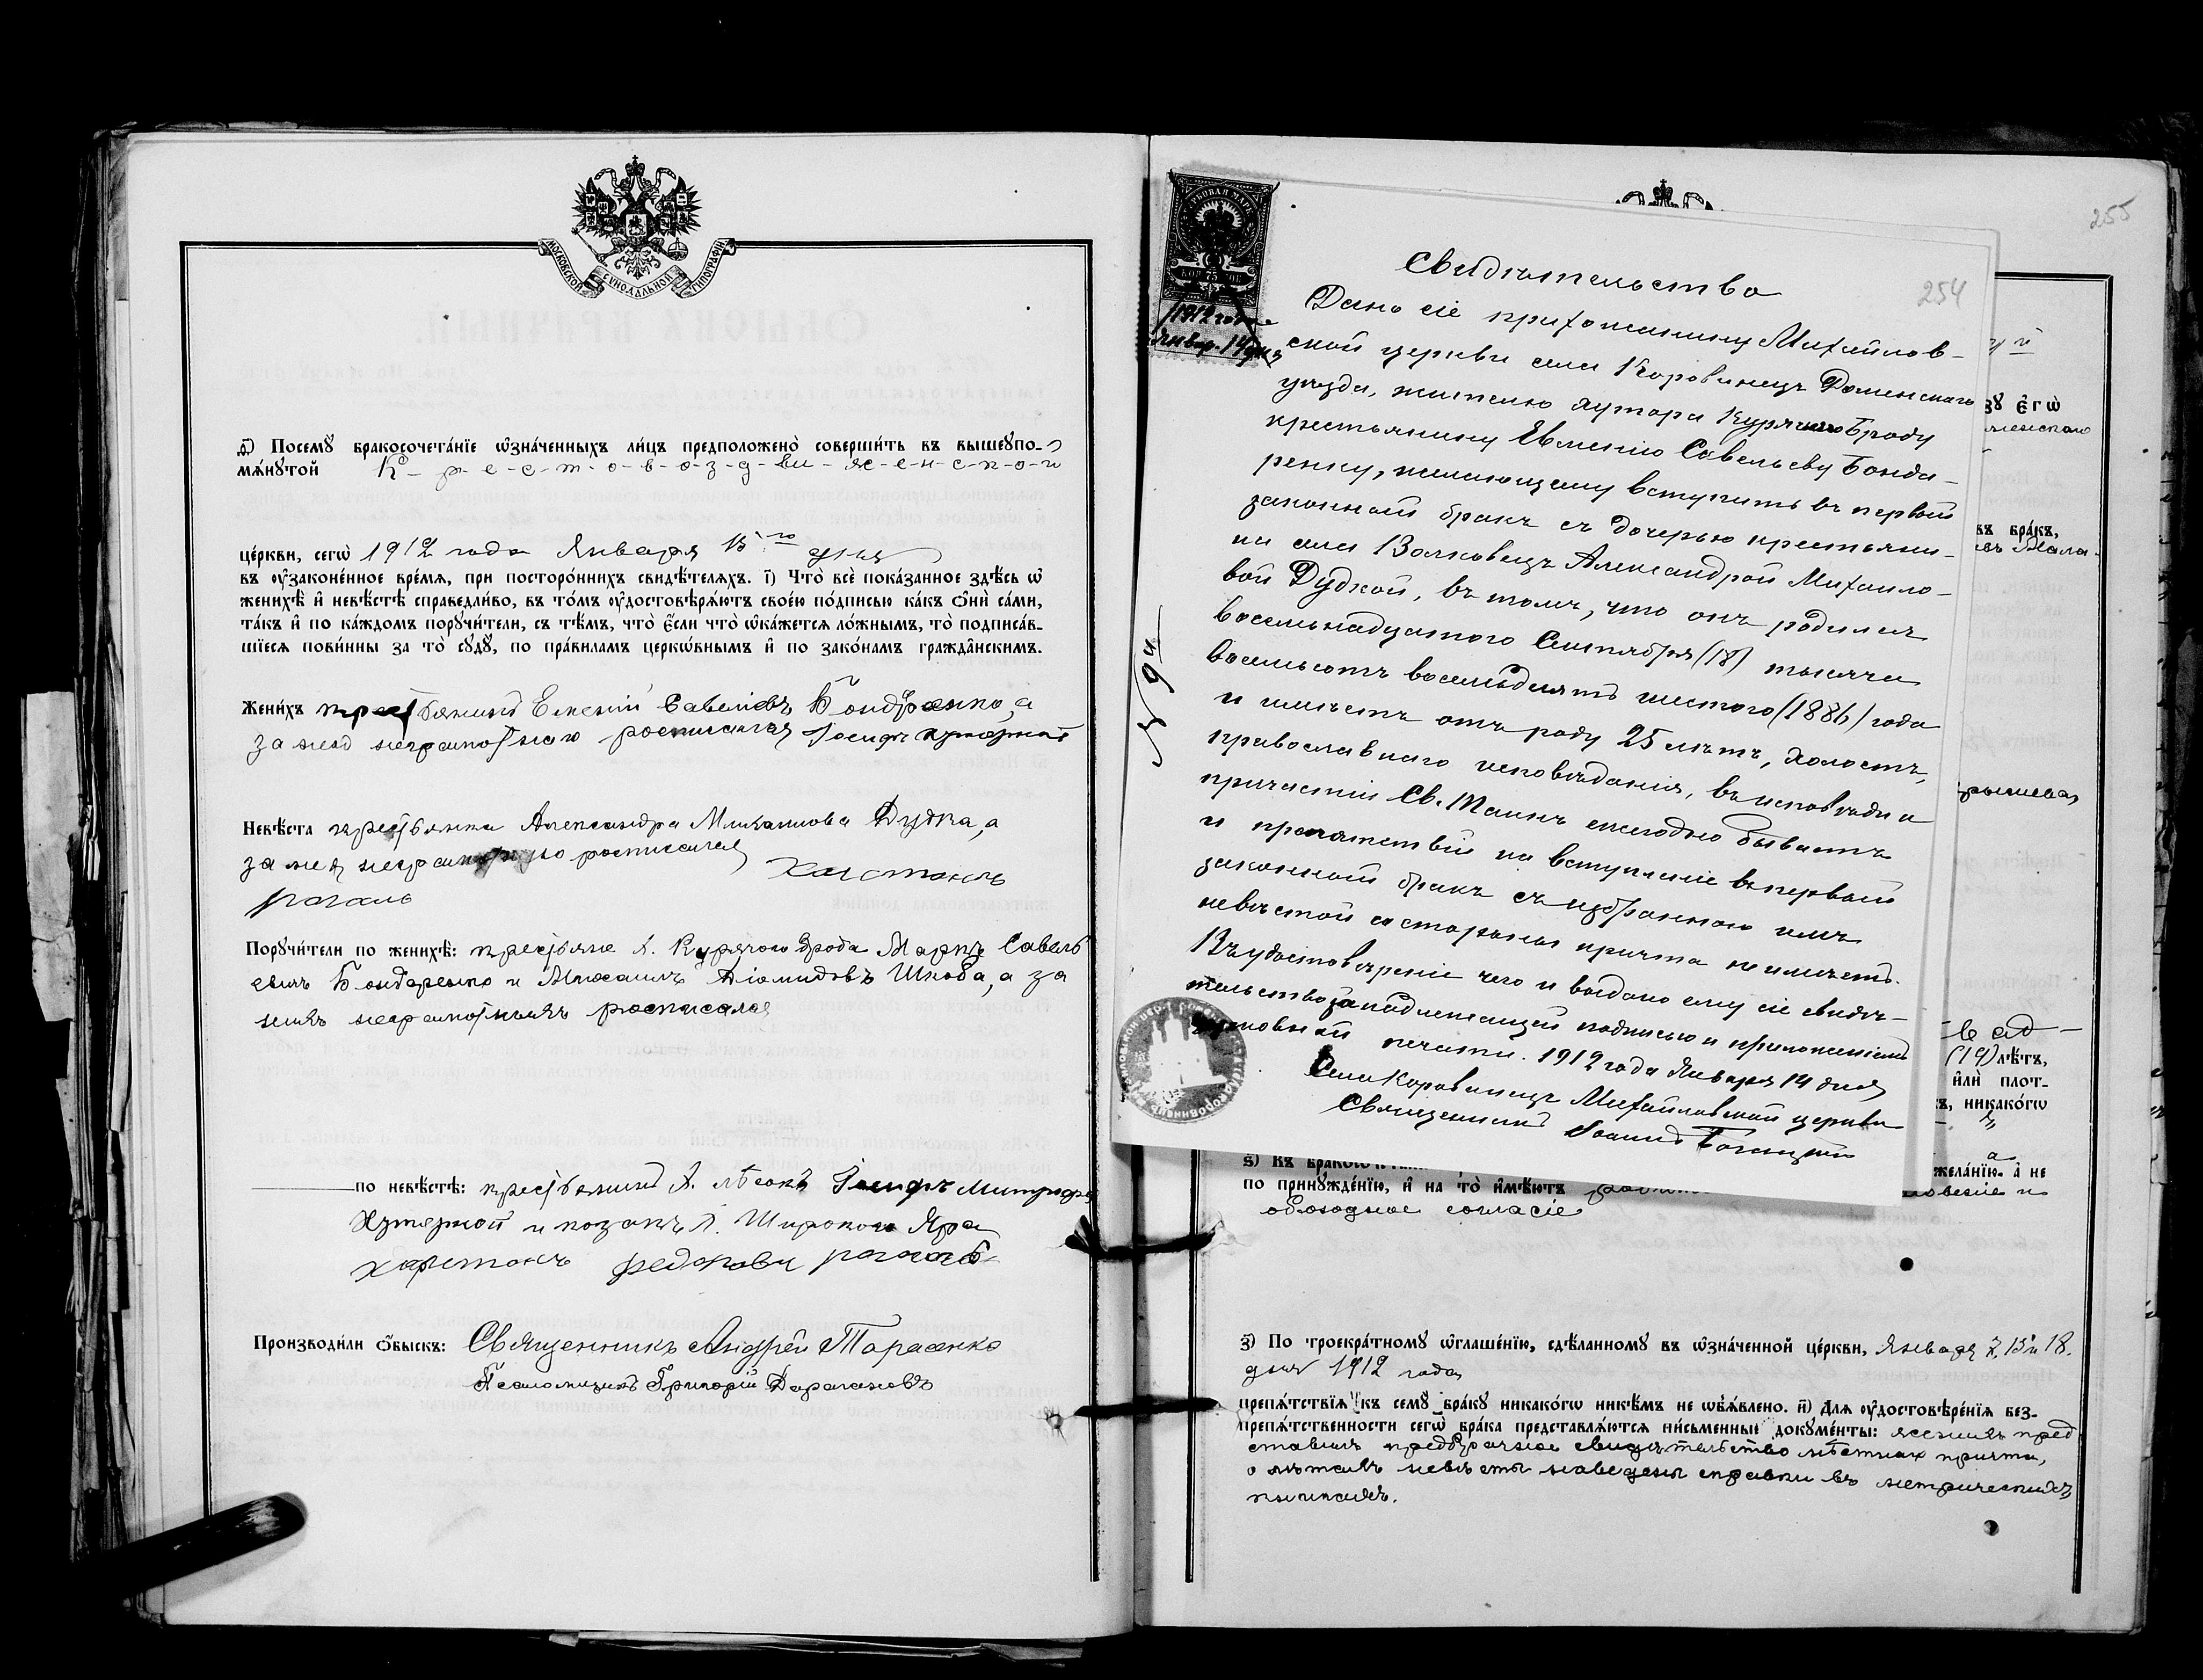 МОСКОВСКОЙ СѴНОДАЛЬНОЙ ТИПОГРАФІИ
д҃) Посемꙋ бракосочета́нїе ѡ҆зна́ченныхъ ли́цъ предположено̀ соверши́ть въ вышеꙋпо-
мѧ́нꙋтой К-р-е-с-т-о-в-о-з-д-ви-же-н-с-к-о-й
це́ркви, сегѡ̀ 1912 года Января 15го дня
въ ᲂу҆зако́ненное вре́мѧ, при посторо́ннихъ свидѣ́телѧхъ. і҃) Что̀ всѐ пока́занное здѣ́сь ѡ҆
женихѣ̀ и҆ невѣ́стѣ справедли́во, въ то́мъ ᲂу҆достовѣрѧ́ютъ свое́ю по́дписью ка́къ ѻ҆нѝ са́ми,
та́къ и҆ по ка́ждомъ порꙋчи́тели, съ тѣ́мъ, что̀ є҆́сли что̀ ѡ҆ка́жетсѧ ло́жнымъ, то̀ подписа́в-
шїесѧ пови́нны за то̀ сꙋдꙋ̀, по пра́виламъ церко́внымъ и҆ по зако́намъ гражда̂нскимъ.
Жени́хъ крестьянинъ Евменій Савелiевъ Бондаренко, а
за него неграмотнаго росписался Іосифъ
Невѣ́ста крестьянка Александра Михаилова Дудка, а
за нея неграмотную росписался Харитонъ
рогаль
Порꙋчи́тели по женихѣ̀: крестьяне х. Курячого Брода Маркъ Савель
евъ Бондаренко и Михаилъ Діомидовъ Шкоба, а за
нихъ неграмотныхъ росписался
по невѣ́стѣ: крестьянинъ х. Лѣсокъ Іосифъ Митроф
и козакъ х. Широкого Яра
харитонъ рогаль
Производи́ли ѻ҆́быскъ: Священникъ Андрей Тарасенко
Псаломщикъ Григорій Дараганъ
255
254
КОП 75 КОП
1912 года
Январ. 14 дня
№ 9й
Свидѣтельство
Дано сіе прихожанину Михайлов-
ской церкви села Коровинецъ Роменскаго
уѣзда, жителю хутора Курячаго Броду
крестьянину Евменію Савельеву Бонда-
ренку, желающему вступить въ первый
законный бракъ съ дочерью крестьяни-
на села Волковецъ Александрой Михайло-
вой Дудкой, въ томъ, что онъ родился
восемьнадцатого Сентября (18) тысяча
восемьсотъ восемьдесятъ шестого (1886) года
и имѣетъ отъ роду 25 лѣтъ, холостъ,
православнаго исповѣданія, въ исповѣди и
причастіи Св. Таинъ ежегодно бываетъ
и препятствій на вступленіе въ первый
законный бракъ съ избранною имъ
невѣстой со стороны причта не имѣетъ.
Въ удостовѣреніе чего и выдано ему сіе свидѣ-
тельство за надлежащей подписью и приложеніемъ
церковной печати. 1912 года Января 14 дня
Села Коровинецъ Михайловской церкви
Священникъ Іоаннъ
ꙋ є҆гѡ̀
въ бра́къ,
(19) лѣ́тъ,
и҆лѝ плот-
никако́гѡ
жела́нїю. а҆ не
по принꙋжде́нїю, и҆ на то̀ и҆мѣ́ютъ
обоюдное согласіе
з҃) По троекра́тномꙋ ѡ҆глаше́нїю, сдѣ́ланномꙋ въ ѡ҆зна́ченной це́ркви, Января 7, 15 и 18.
дня 1912 года
препѧ́тствїѧ къ семꙋ̀ бра́кꙋ никако́гѡ никѣ́мъ не ѡ҆б̾ѧ́влено. и҃) Длѧ ᲂу҆достовѣре́нїѧ без-
препѧ́тственности сегѡ̀ бра́ка представлѧ́ютсѧ пи́сьменные докꙋме́нты: женихъ пред
ставилъ предбрачное свидѣтельство мѣстнаго причта,
о лѣтахъ невѣсты наведены справки въ метрическихъ
книгахъ.